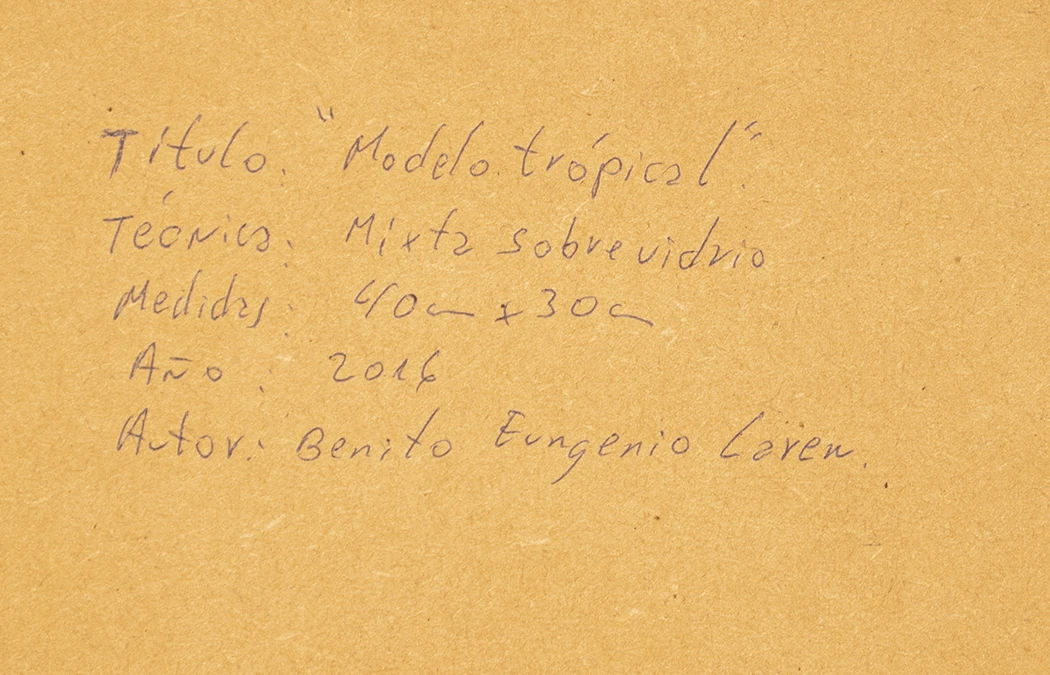 Título: "Modelo trópical".
Técnica: Mixta sobre vidrio
Medidas: 40cm x 30cm
Año: 2016
Autor: Benito Eungenio Laren.